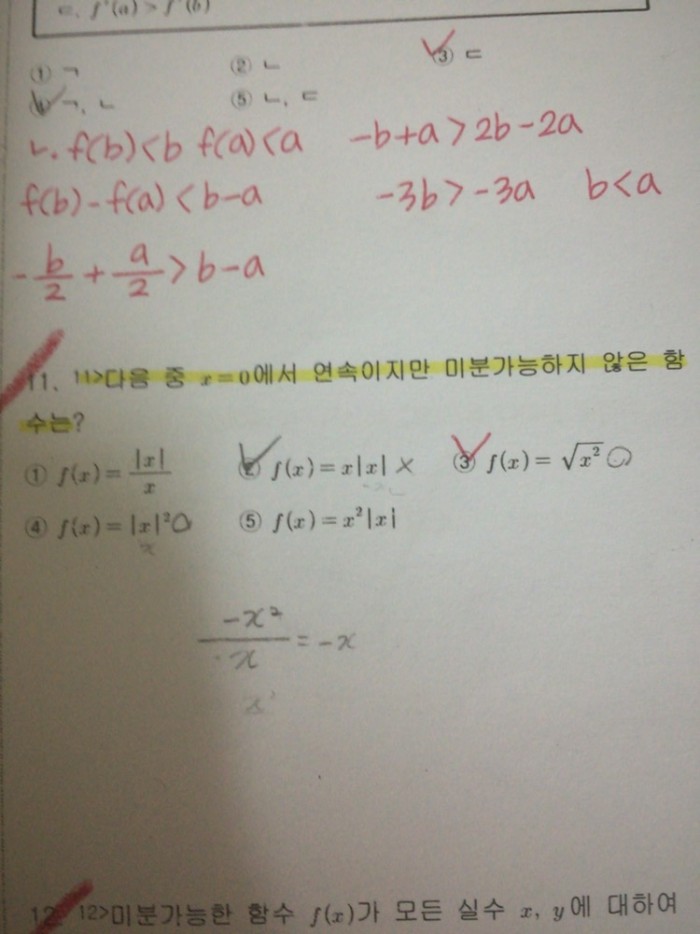 ㄷ. f'(a) > f'(b)
① ㄱ ② ㄴ ③ ㄷ
④ ㄱ, ㄴ ⑤ ㄴ, ㄷ
ㄴ. f(b)<b f(a)<a -b+a>2b-2a
f(b)-f(a)<b-a -3b>-3a b<a
-b/2 + a/2 > b-a
11. 11>다음 중 x=0에서 연속이지만 미분가능하지 않은 함
수는?
① f(x)=|x|/x ② f(x)=x|x| × ③ f(x)=√x² ○
④ f(x)=|x|² ○ ⑤ f(x)=x²|x|
-x²/x = -x
12. 12>미분가능한 함수 f(x)가 모든 실수 x, y에 대하여